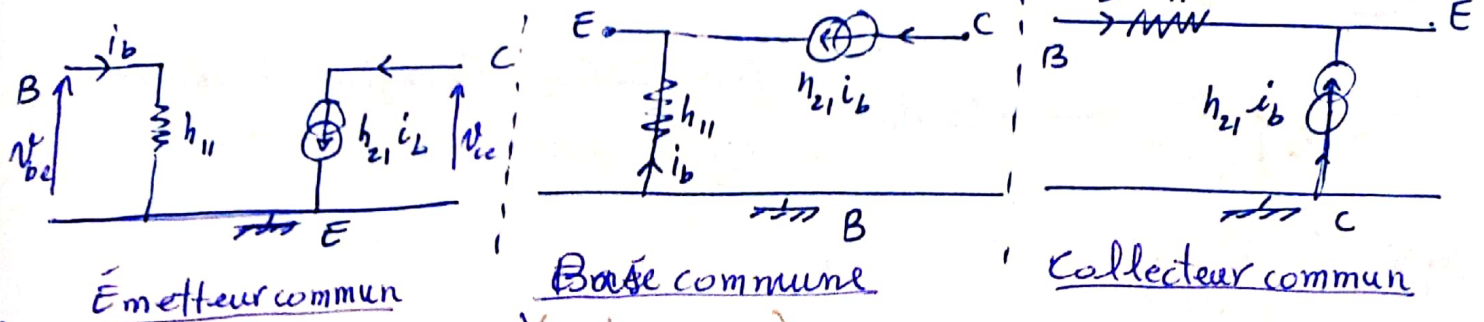 B
i_b
v_be
h_11
h_21 i_b
C
v_ce
E
Émetteur commun
E
C
h_11
i_b
h_21 i_b
B
Base commune
B
E
h_21 i_b
C
Collecteur commun